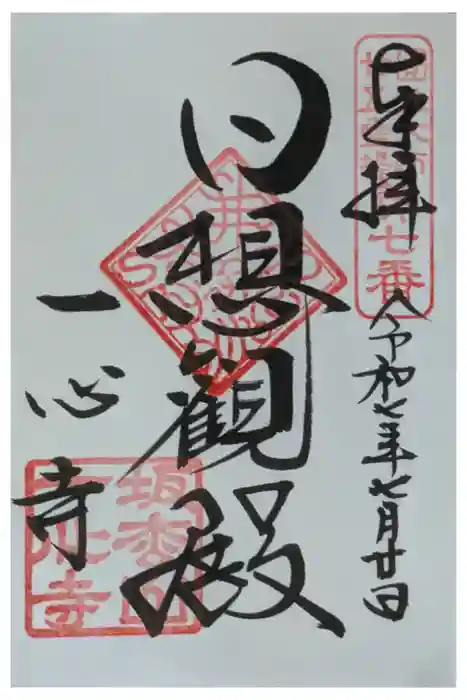 奉拝
七番
令和七年七月廿日
日想観殿
一心寺
坂松山
一心寺